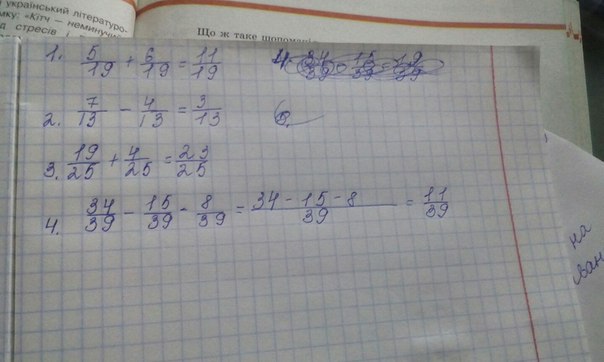 український літературо-
мку: «Кітч – неминучий
стресів і
Що ж таке
1. 5/19 + 6/19 = 11/19
2. 7/13 - 4/13 = 3/13
3. 19/25 + 4/25 = 23/25
4. 34/39 - 15/39 - 8/39 = 34-15-8/39 = 11/39
на